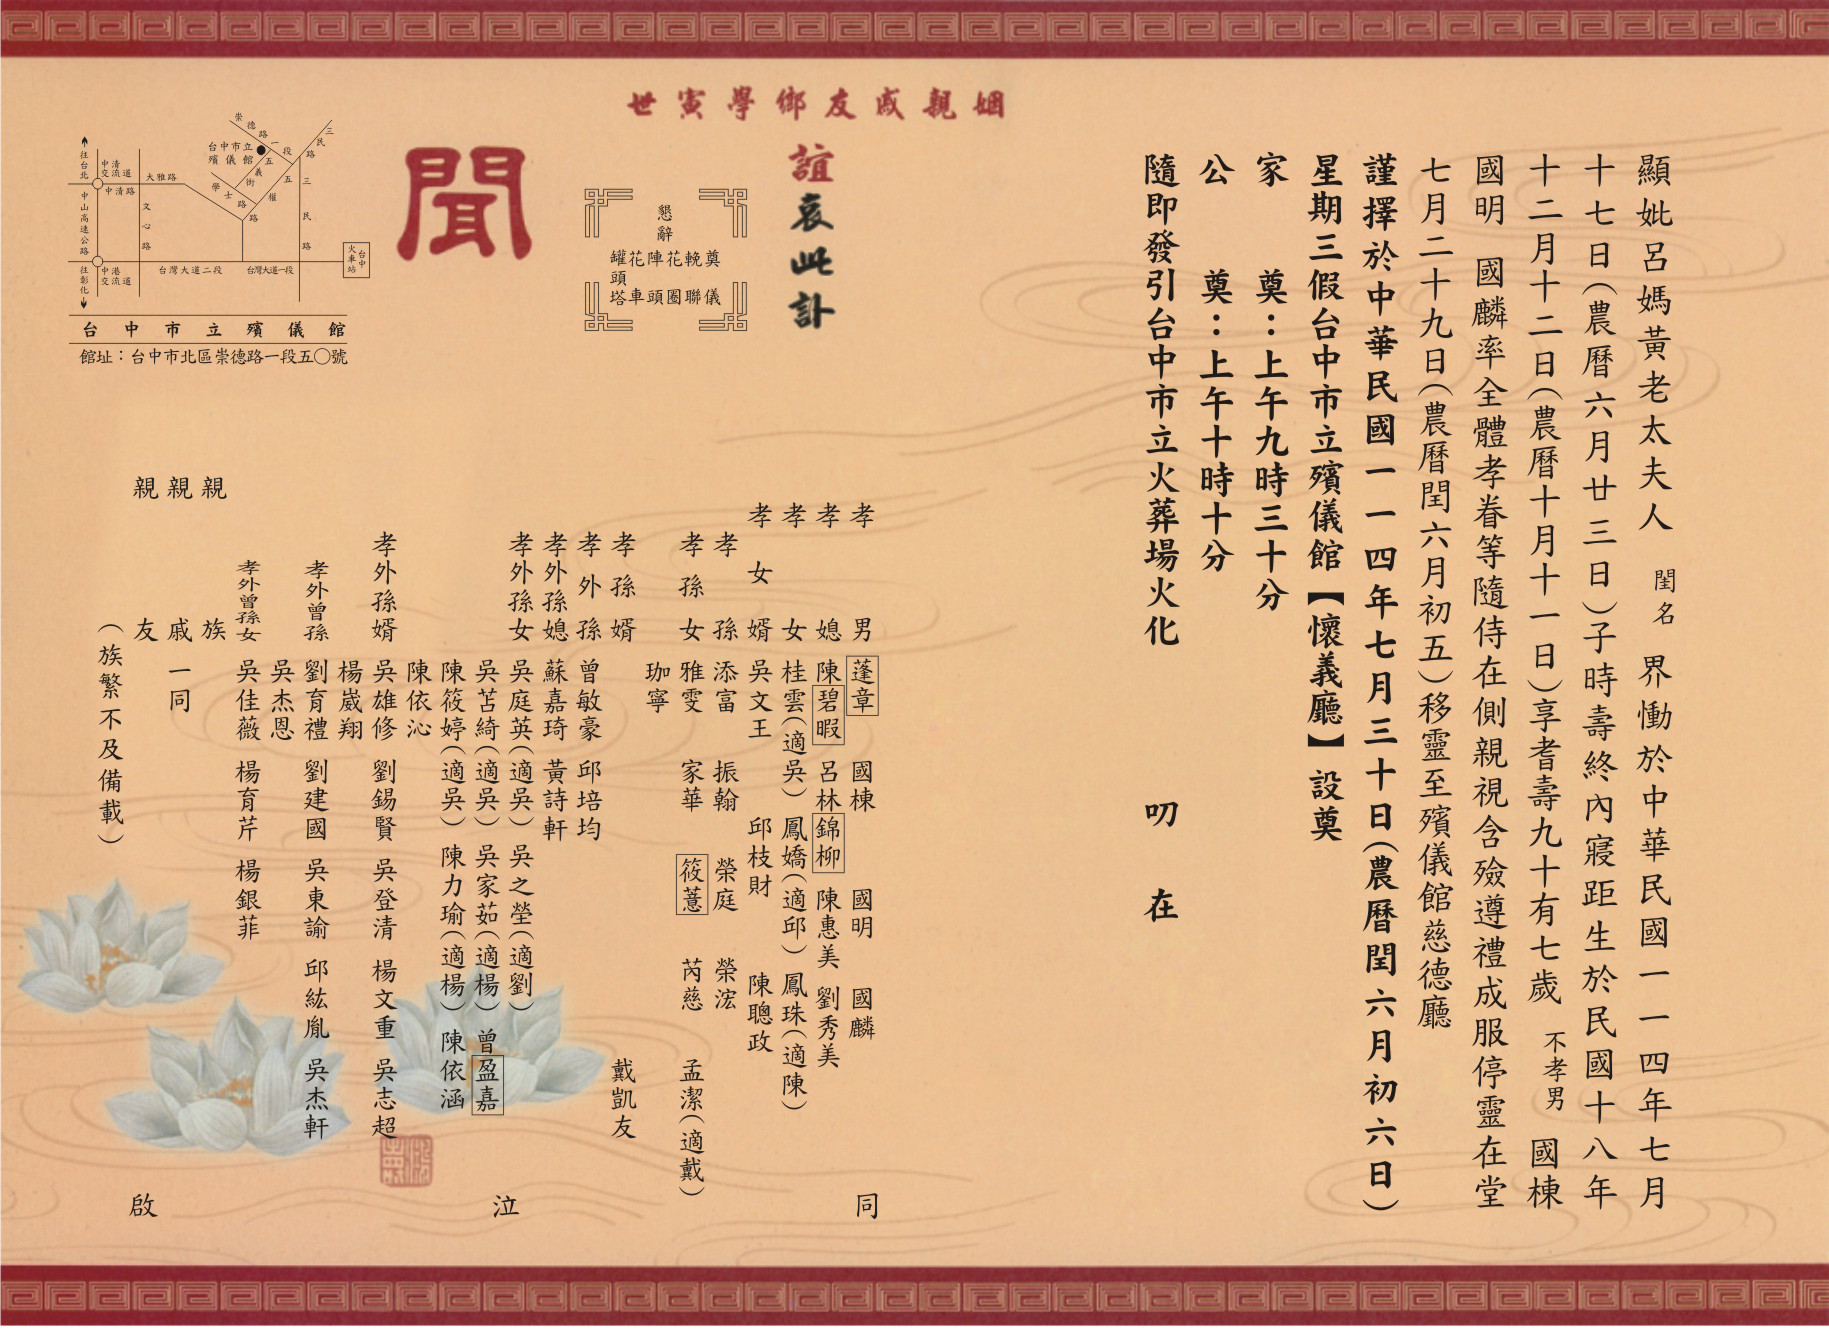 顯妣呂媽黃老太夫人 閨名 界慟於中華民國一一四年七月
十七日(農曆六月廿三日)子時壽終內寢距生於民國十八年
十二月十二日(農曆十月十一日)享耆壽九十有七歲 不孝男 國棟
國明 國麟率全體孝眷等隨侍在側親視含殮遵禮成服停靈在堂
七月二十九日(農曆閏六月初五)移靈至殯儀館慈德廳
謹擇於中華民國一一四年七月三十日(農曆閏六月初六日)
星期三假台中市立殯儀館【懷義廳】設奠
家 奠:上午九時三十分
公 奠:上午十時十分
隨即發引台中市立火葬場火化 叨 在
姻親戚友鄉學寅世
誼哀此訃
聞
懇辭
奠輓花陣花罐頭
儀聯圈頭車塔
孝男 蓬章 國棟 國明 國麟
孝媳 陳碧暇 呂林錦柳 陳惠美 劉秀美
孝女 桂雲(適吳) 鳳嬌(適邱) 鳳珠(適陳)
孝女婿 吳文王 邱枝財 陳聰政
孝孫 添富 振翰 榮庭 榮浤
孝孫女 雅雯 家華 筱薏 芮慈 孟潔(適戴)
珈寧
孝孫婿 戴凱友
孝外孫 曾敏豪 邱培均
孝外孫媳 蘇嘉琦 黃詩軒
孝外孫女 吳庭英(適吳) 吳之塋(適劉)
吳苫綺(適吳) 吳家茹(適楊) 曾盈嘉
陳筱婷(適吳) 陳力瑜(適楊) 陳依涵
陳依沁
孝外孫婿 吳雄修 劉錫賢 吳登清 楊文重 吳志超
楊崴翔
孝外曾孫 劉育禮 劉建國 吳東諭 邱紘胤 吳杰軒
吳杰恩
孝外曾孫女 吳佳薇 楊育芹 楊銀菲
親族
親戚一同
親友
(族繁不及備載)
同泣啟
崇德路一段
三民路
台中市立殯儀館
五義街
五權路
學士路
三民路
往台北
中清交流道
中清路
大雅路
文心路
中山高速公路
中港交流道
往彰化
台灣大道二段
台灣大道一段
台中火車站
台中市立殯儀館
館址:台中市北區崇德路一段五〇號